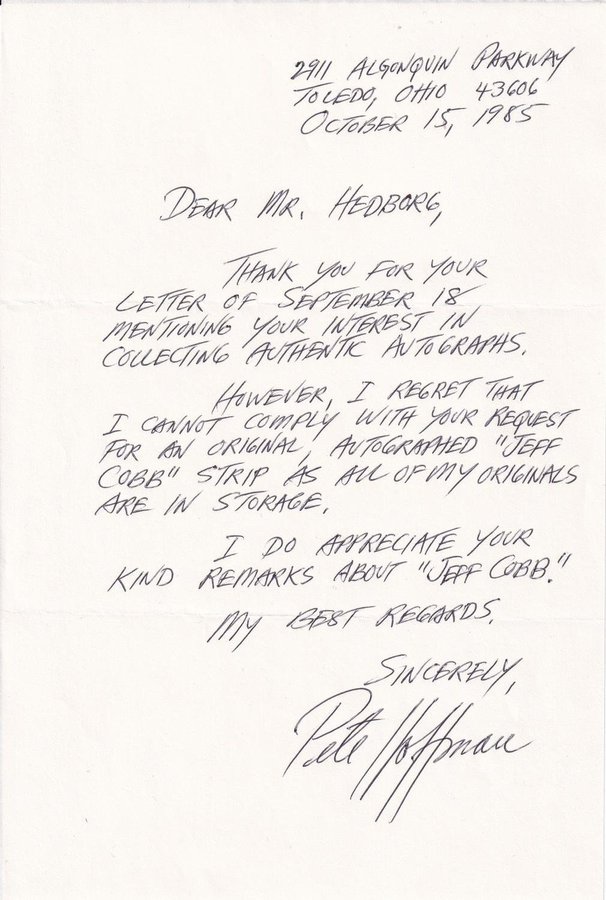 2911 ALGONQUIN PARKWAY
TOLEDO, OHIO 43606
OCTOBER 15, 1985
DEAR MR. HEDBORG,
THANK YOU FOR YOUR
LETTER OF SEPTEMBER 18
MENTIONING YOUR INTEREST IN
COLLECTING AUTHENTIC AUTOGRAPHS.
HOWEVER, I REGRET THAT
I CANNOT COMPLY WITH YOUR REQUEST
FOR AN ORIGINAL, AUTOGRAPHED "JEFF
COBB" STRIP AS ALL OF MY ORIGINALS
ARE IN STORAGE.
I DO APPRECIATE YOUR
KIND REMARKS ABOUT "JEFF COBB."
MY BEST REGARDS.
SINCERELY,
Pete Hoffman